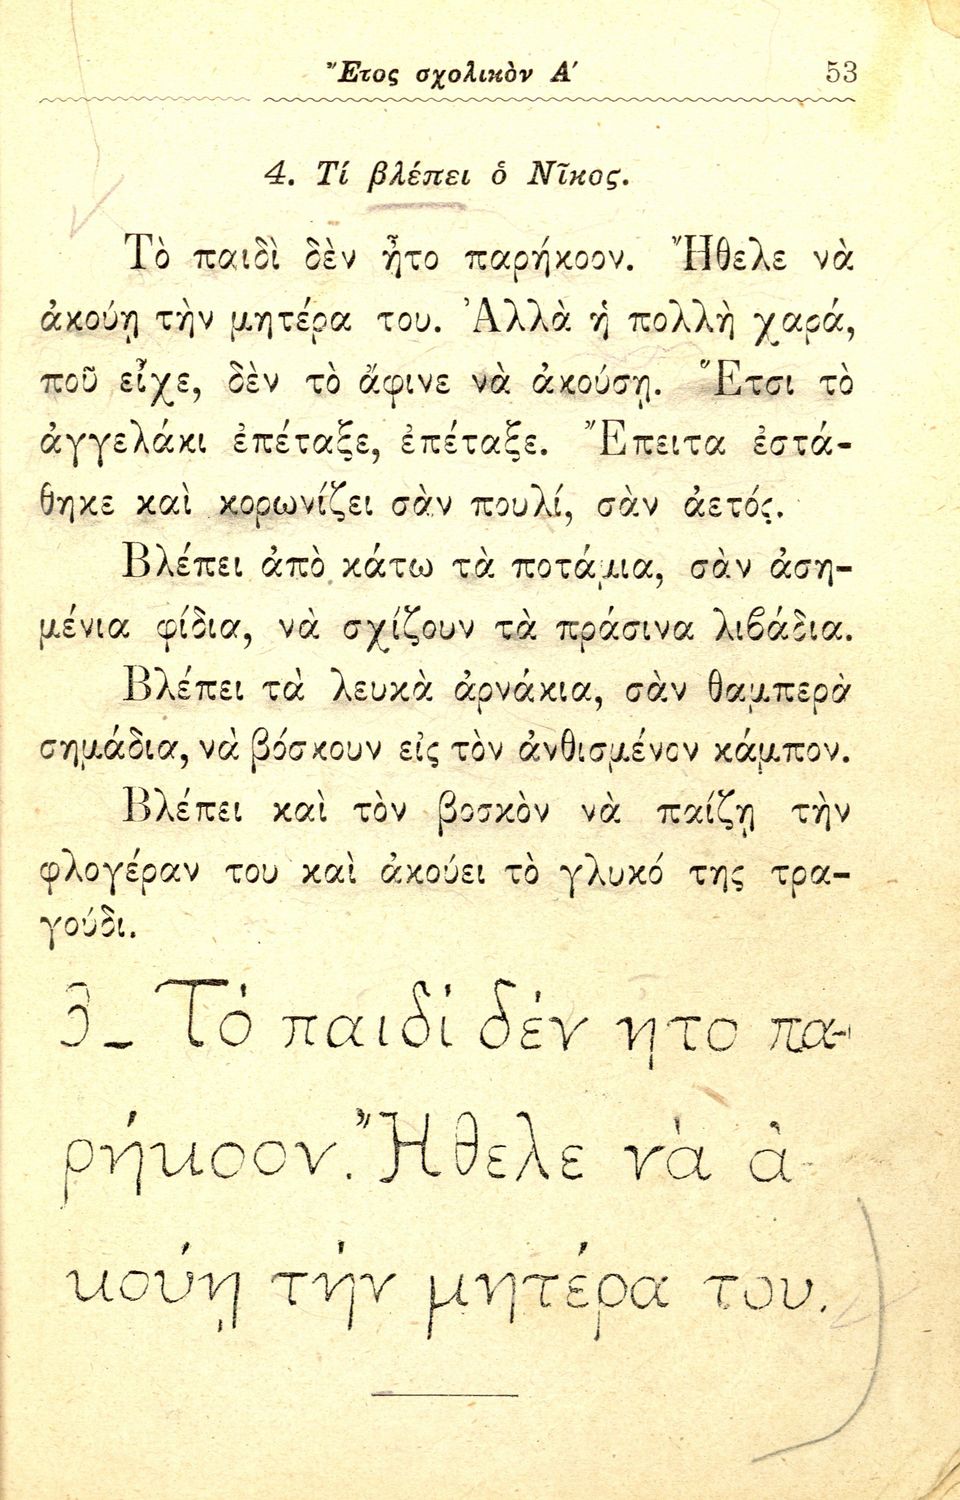 Ἔτος σχολικὸν Α΄ 53
4. Τί βλέπει ὁ Νῖκος.
Τὸ παιδὶ δὲν ἦτο παρήκοον. Ἤθελε νὰ
ἀκούῃ τὴν μητέρα του. Ἀλλὰ ἡ πολλὴ χαρά,
ποῦ εἶχε, δὲν τὸ ἄφινε νὰ ἀκούσῃ. Ἔτσι τὸ
ἀγγελάκι ἐπέταξε, ἐπέταξε. Ἔπειτα ἐστά-
θηκε καὶ κορωνίζει σὰν πουλί, σὰν ἀετός.
Βλέπει ἀπὸ κάτω τὰ ποτάμια, σὰν ἀση-
μένια φίδια, νὰ σχίζουν τὰ πράσινα λιβάδια.
Βλέπει τὰ λευκὰ ἀρνάκια, σὰν θαμπερὰ
σημάδια, νὰ βόσκουν εἰς τὸν ἀνθισμένον κάμπον.
Βλέπει καὶ τὸν βοσκὸν νὰ παίζῃ τὴν
φλογέραν του καὶ ἀκούει τὸ γλυκό της τρα-
γούδι.
3_ Τὸ παιδὶ δὲν ητο πα-
ρήκοον. Ἤθελε νὰ ἀ-
κούῃ τὴν μητέρα του.